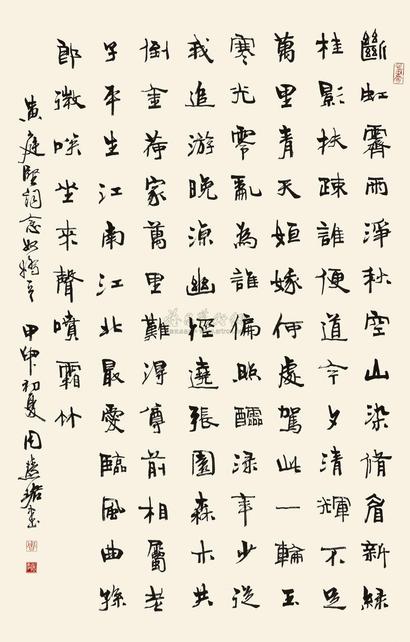 斷虹霽雨淨秋空山染脩眉新綠
桂影扶疎誰便道今夕清輝不足
萬里青天姮娥何處駕此一輪玉
寒光零亂為誰偏照醽淥年少從
我追游晚涼幽徑遶張園森木共
倒金荷家萬里難得尊前相屬老
子平生江南江北最愛臨風曲孫
郎微咲坐來聲噴霜竹
黄庭堅詞念奴嬌 甲申初夏周慧珺書